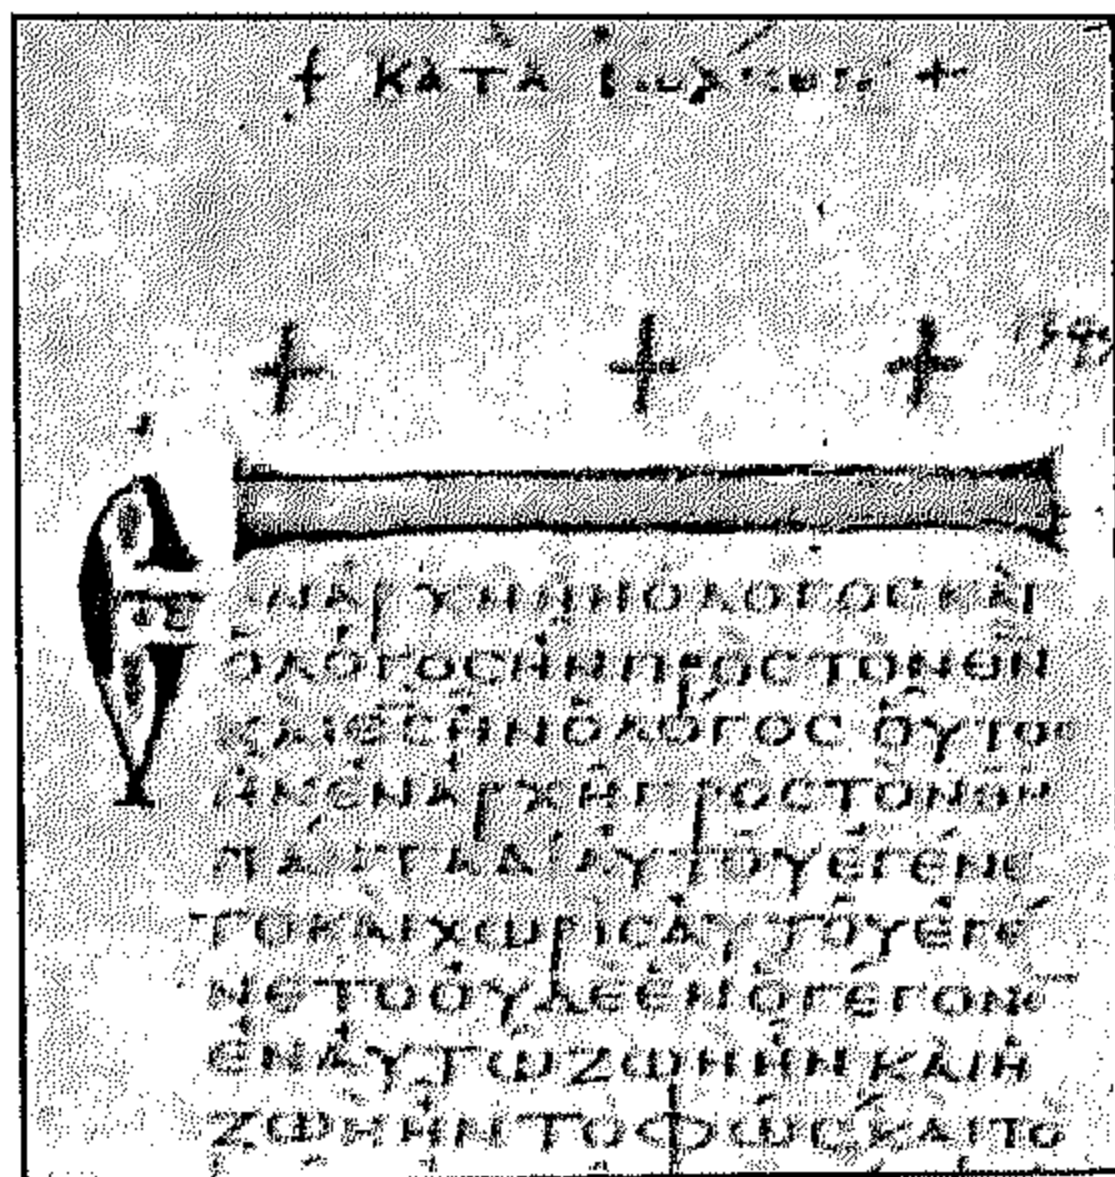 + ΚΑΤΑ ΙΩΑΝΝΗΝ +
ΕΝΑΡΧΗΗΝΟΛΟΓΟϹΚΑΙ
ΟΛΟΓΟϹΗΝΠΡΟϹΤΟΝΘΝ
ΚΑΙΘϹΗΝΟΛΟΓΟϹ ΟΥΤΟϹ
ΗΝΕΝΑΡΧΗΠΡΟϹΤΟΝΘΝ
ΠΑΝΤΑΔΙΑΥΤΟΥΕΓΕΝΕ
ΤΟΚΑΙΧΩΡΙϹΑΥΤΟΥΕΓΕ
ΝΕΤΟΟΥΔΕΕΝΟΓΕΓΟΝΕ
ΕΝΑΥΤΩΖΩΗΗΝΚΑΙΗ
ΖΩΗΗΝΤΟΦΩϹΚΑΙΤΟ